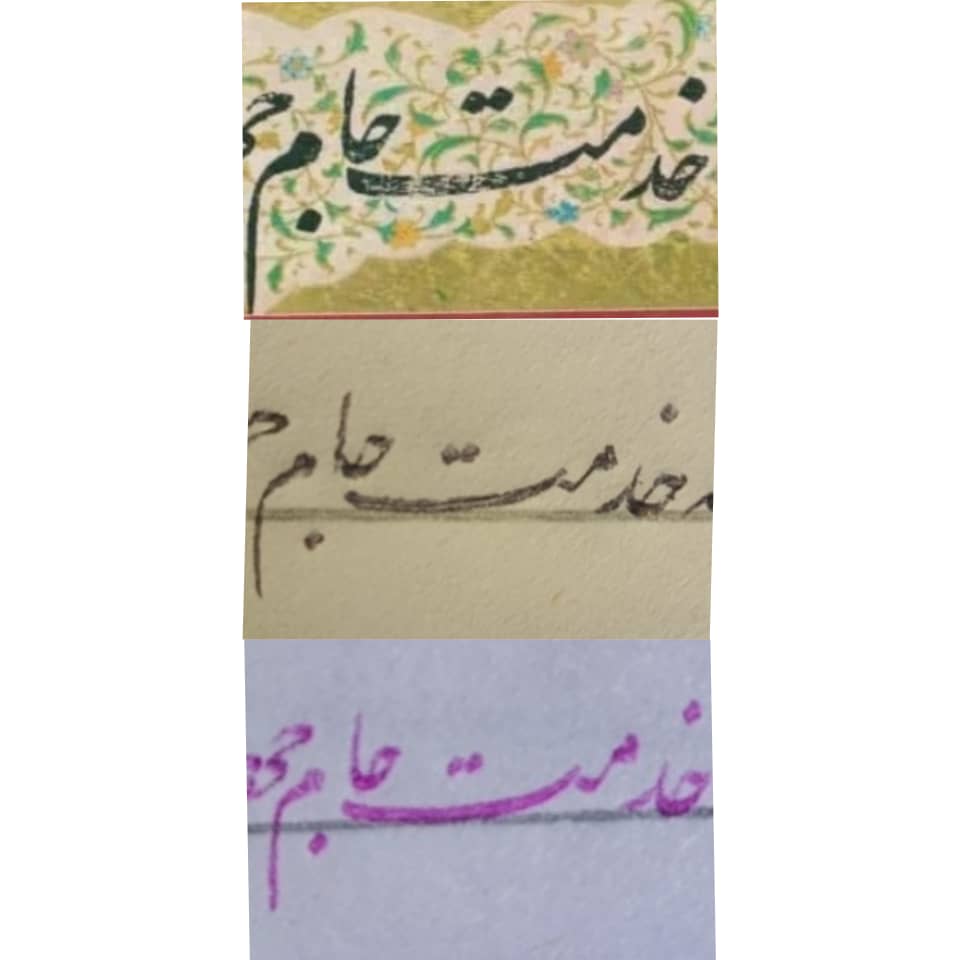 خدمت جام
خدمت جام
خدمت جام